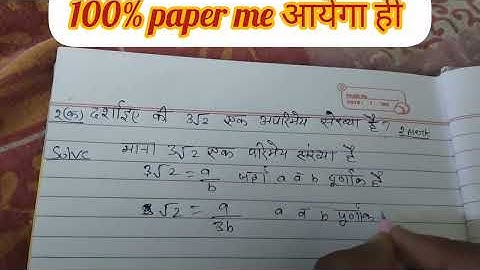 100% paper me आयेगा ही
2(क) दर्शाइए की 3√2 एक अपरिमेय संख्या है? 2 Mark
Solve माना 3√2 एक परिमेय संख्या है
3√2 = a/b जहाँ a व b पूर्णांक है
√2 = a/3b a व b पूर्णांक